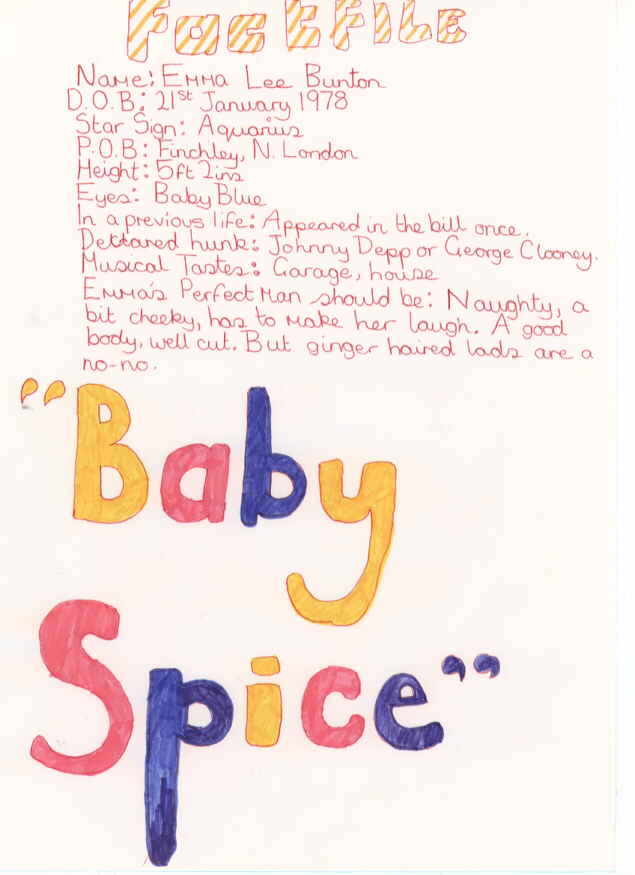 FactFILE
Name: Emma Lee Bunton
D.O.B: 21st January 1978
Star Sign: Aquarius
P.O.B: Finchley, N. London
Height: 5ft 2ins
Eyes: Baby Blue
In a previous life: Appeared in the bill once.
Declared hunk: Johnny Depp or George Clooney.
Musical Tastes: Garage, house
Emma's Perfect Man should be: Naughty, a
bit cheeky, has to make her laugh. A good
body, well cut. But ginger haired lads are a
no-no.
"Baby
Spice"